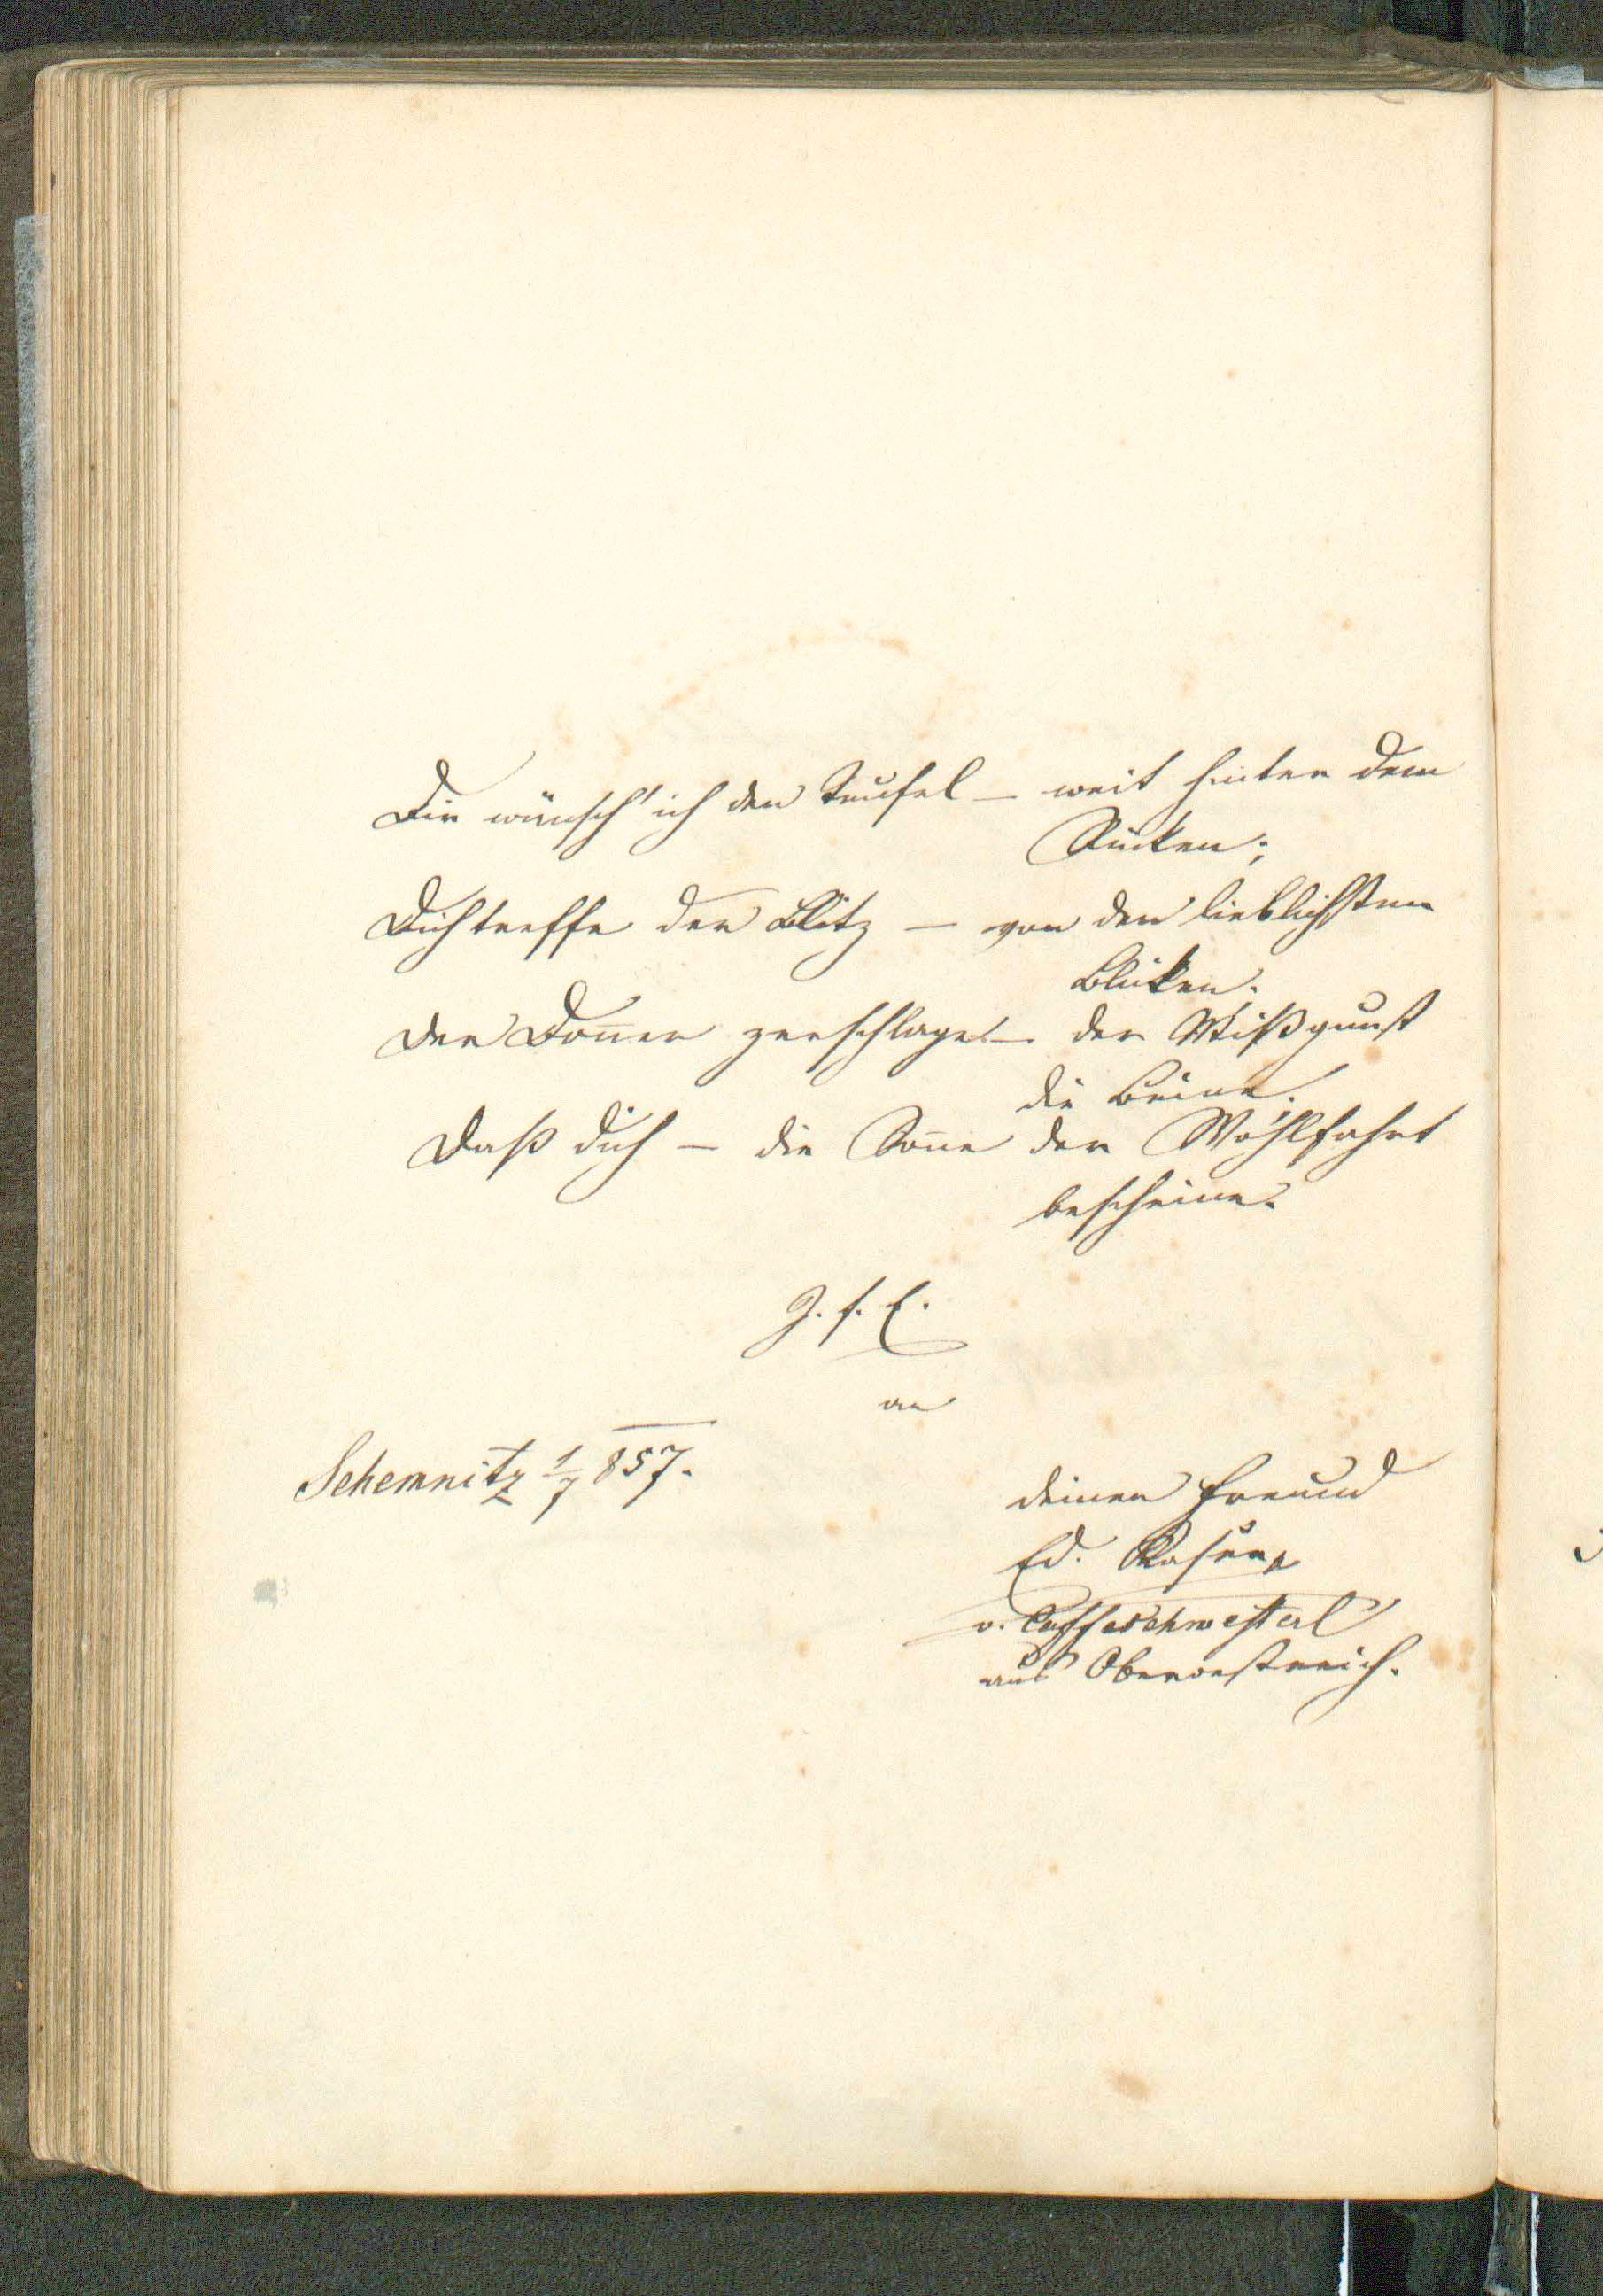 Dir wünsch' ich den Teufel – weit hinter dem
Rücken;
Dich treffe der Blitz – von den lieblichsten
Blicken.
Der Donner zerschlage – der Mißgunst
die Beine.
Daß dich – die Sonne der Wohlfahrt
bescheine.
Z. f. E.
an
Schemnitz 1/7 857.
deinen Freund
Ed.
v. Caffeschwesterl
aus Oberoestreich.